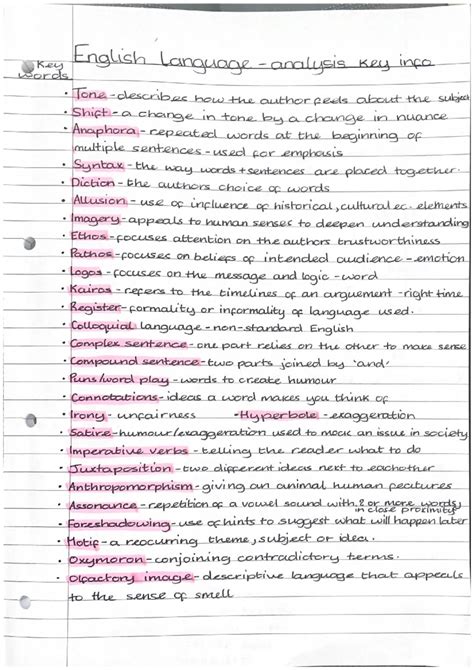 English Language - analysis key info
Key words
• Tone - describes how the author feels about the subject
• Shift - a change in tone by a change in nuance
• Anaphora - repeated words at the beginning of
multiple sentences - used for emphasis
• Syntax - the way words + sentences are placed together.
• Diction - the authors choice of words
• Allusion - use of influence of historical, cultural ec. elements
• Imagery - appeals to human senses to deepen understanding
• Ethos - focuses attention on the authors trustworthiness
• Pathos - focuses on beliefs of intended audience - emotion
• Logos - focuses on the message and logic - word
• Kairos - refers to the timelines of an arguement - right time
• Register - formality or informality of language used.
• Colloquial language - non-standard English
• Complex sentence - one part relies on the other to make sense
• Compound sentence - two parts joined by 'and'
• Puns/word play - words to create humour
• Connotations - ideas a word makes you think of
• Irony - unfairness - Hyperbole - exaggeration
• Satire - humour/exaggeration used to mock an issue in society
• Imperative verbs - telling the reader what to do
• Juxtaposition - two different ideas next to eachother
• Anthropomorphism - giving an animal human features
• Assonance - repetition of a vowel sound with 2 or more words in close proximity
• Foreshadowing - use of hints to suggest what will happen later
• Motif - a reocurring theme, subject or idea.
• Oxymoron - conjoining contradictory terms.
• Olfactory image - descriptive language that appeals
to the sense of smell